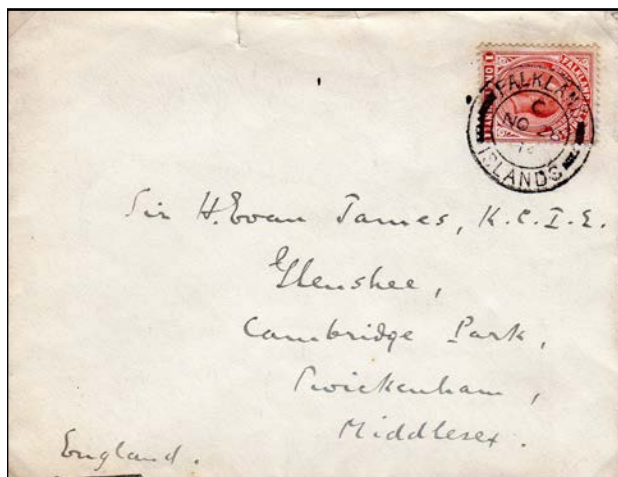 FALKLAND
C
NO 26
ISLANDS
Sir H. Evan James, K.C.I.E.
Glenshee,
Cambridge Park,
Twickenham,
Middlesex.
England.